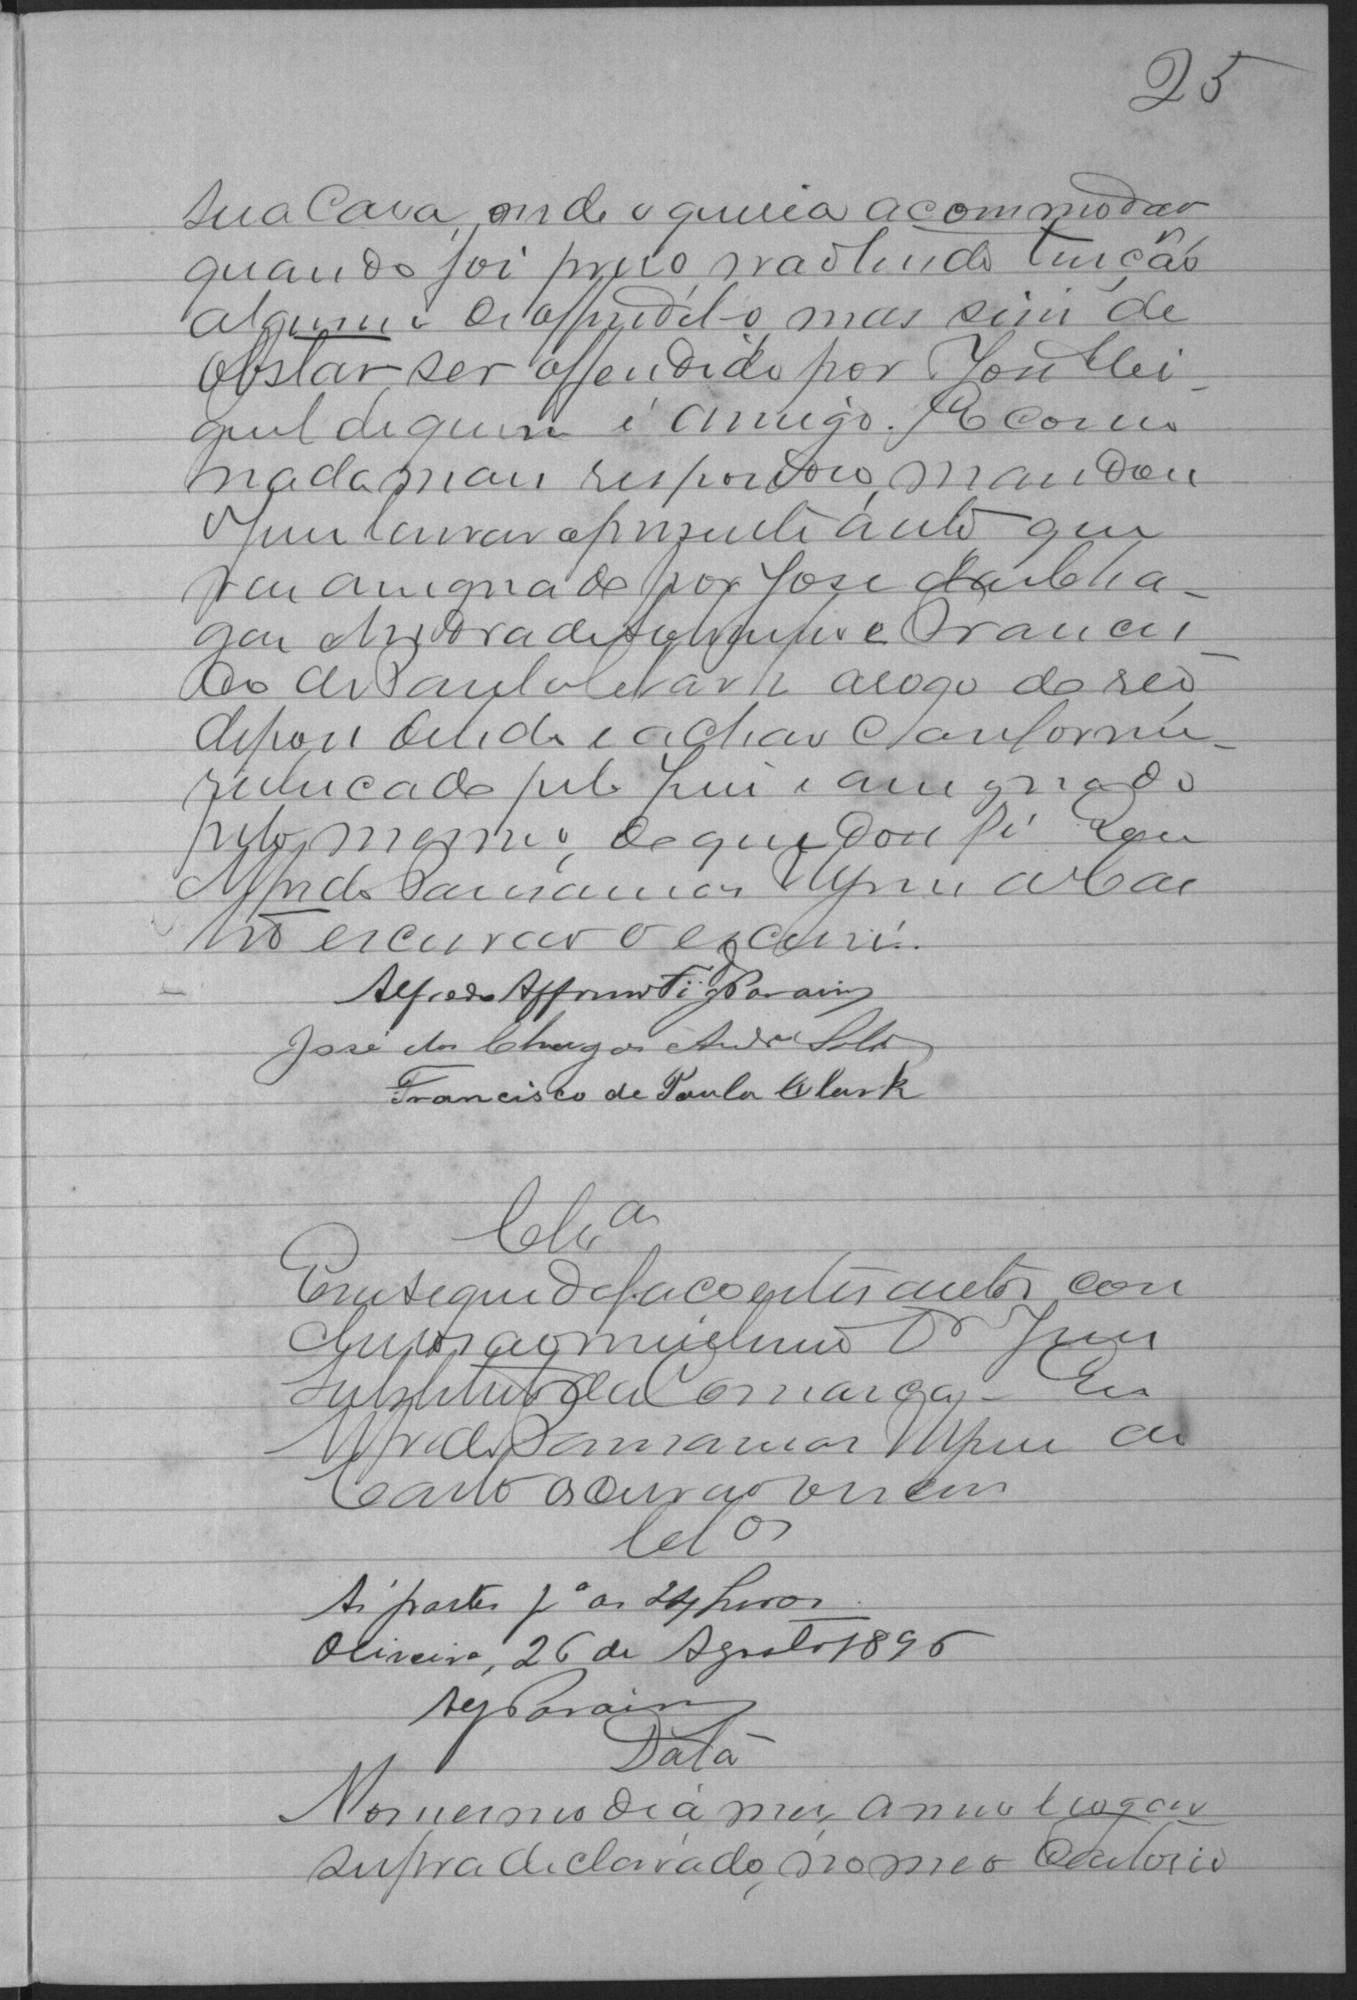 25
sua casa, onde o queria acommodar
quando foi preso, não tendo tenção
alguma de offendel-o, mas sim de
obstar ser offendido por José Mi-
guel de quem é amigo. E como
nada mais respondeu, mandou
o Juiz lavrar o presente auto que
vai assignado por José das Cha-
gas Andrade e Francis-
co de Paula Clark a rogo do réo
depois de lido e achar conforme
rubricado pelo Juiz e assignado
pelo mesmo, do que dou fé. Eu
Alfredo de Cas
tro escrivão o escrevi.
Alfredo Affonso
José das Chagas Andre
Francisco de Paula Clark
Cls.as
Em seguida faço estes autos con
clusos ao mesmo Dr Juiz
Substituto da Comarca. Eu
Alfredo de
Castro escrivão o escrevi
Cls.os
Ás partes p.a as 24 horas.
Oliveira, 26 de Agosto 1896
Data
No mesmo dia, mez, anno e lugar
supra declarado, no meo Cartorio